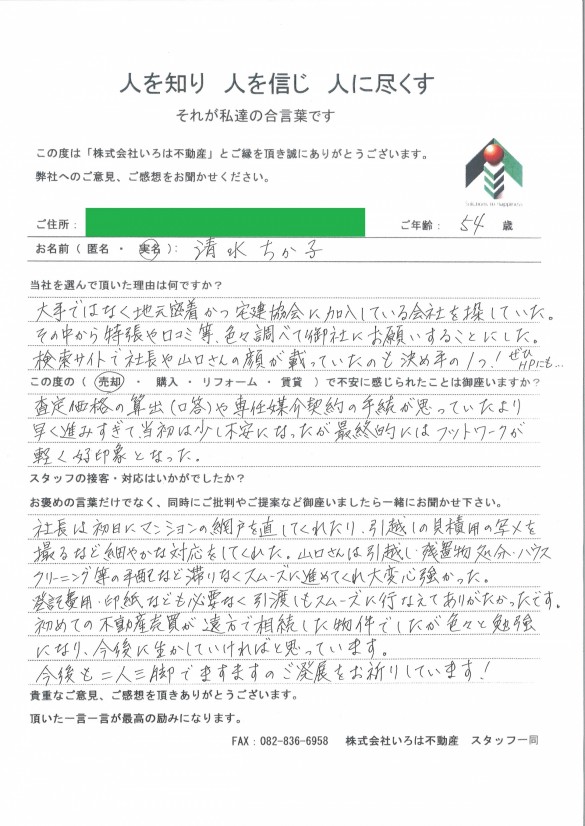 人を知り 人を信じ 人に尽くす
それが私達の合言葉です
この度は「株式会社いろは不動産」とご縁を頂き誠にありがとうございます。
弊社へのご意見、ご感想をお聞かせください。
Solutions to happiness
ご住所:
ご年齢: 54 歳
お名前(匿名・実名): 清水ちか子
当社を選んで頂いた理由は何ですか?
大手ではなく地元密着かつ宅建協会に加入している会社を探していた。
その中から特張や口コミ等、色々調べて御社にお願いすることにした。
検索サイトで社長や山口さんの顔が載っていたのも決め手の1つ!ぜひHPにも…
この度の(売却・購入・リフォーム・賃貸)で不安に感じられたことは御座いますか?
査定価格の算出(口答)や専任媒介契約の手続が思っていたより
早く進みすぎて当初は少し不安になったが最終的にはフットワークが
軽く好印象となった。
スタッフの接客・対応はいかがでしたか?
お褒めの言葉だけでなく、同時にご批判やご提案など御座いましたら一緒にお聞かせ下さい。
社長は初日にマンションの網戸を直してくれたり、引越しの見積用の写メを
撮るなど細やかな対応をしてくれた。山口さんは引越し・残置物処分・ハウス
クリーニング等の手配など滞りなくスムーズに進めてくれ大変心強かった。
登記費用・印紙なども必要なく引渡しもスムーズに行なえてありがたかったです。
初めての不動産売買が遠方で相続した物件でしたが色々と勉強
になり、今後に生かしていければと思っています。
今後も二人三脚でますますのご発展をお祈りしています!
貴重なご意見、ご感想を頂きありがとうございます。
頂いた一言一言が最高の励みになります。
FAX:082-836-6958 株式会社いろは不動産 スタッフ一同